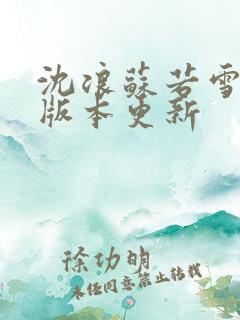 沈浪蘇若雪
版本更新
徐功明
未经同意禁止转载